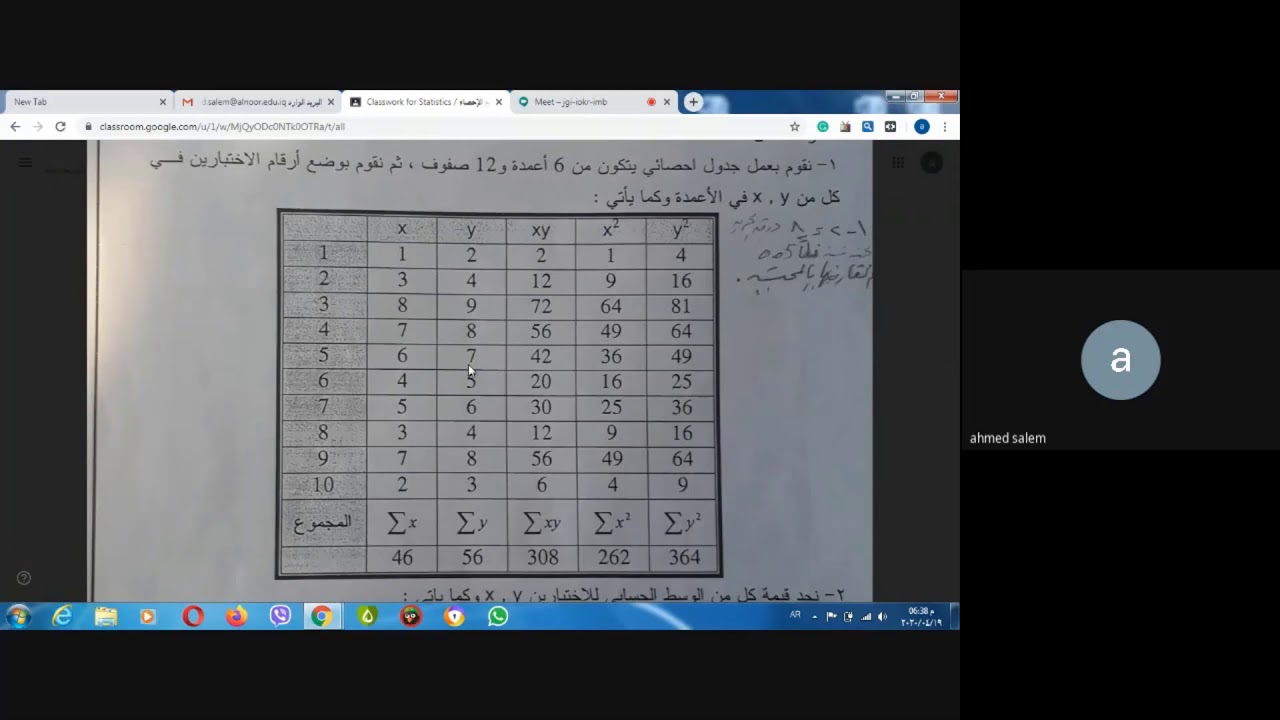 New Tab
d.salem@alnoor.edu.iq البريد الوارد
Classwork for Statistics / الإحصاء
Meet – jgi-iokr-imb
classroom.google.com/u/1/w/MjQyODc0NTk0OTRa/t/all
١- نقوم بعمل جدول احصائي يتكون من 6 أعمدة و12 صفوف ، ثم نقوم بوضع أرقام الاختبارين في
كل من x , y في الأعمدة وكما يأتي :
x y xy x² y²
1 1 2 2 1 4
2 3 4 12 9 16
3 8 9 72 64 81
4 7 8 56 49 64
5 6 7 42 36 49
6 4 5 20 16 25
7 5 6 30 25 36
8 3 4 12 9 16
9 7 8 56 49 64
10 2 3 6 4 9
المجموع ∑x ∑y ∑xy ∑x² ∑y²
46 56 308 262 364
٢- نجد قيمة كل من الوسط الحسابي للاختبارين x , y وكما يأتي :
a
ahmed salem
AR
06:38 م
٢٠٢٠/٠٤/١٩